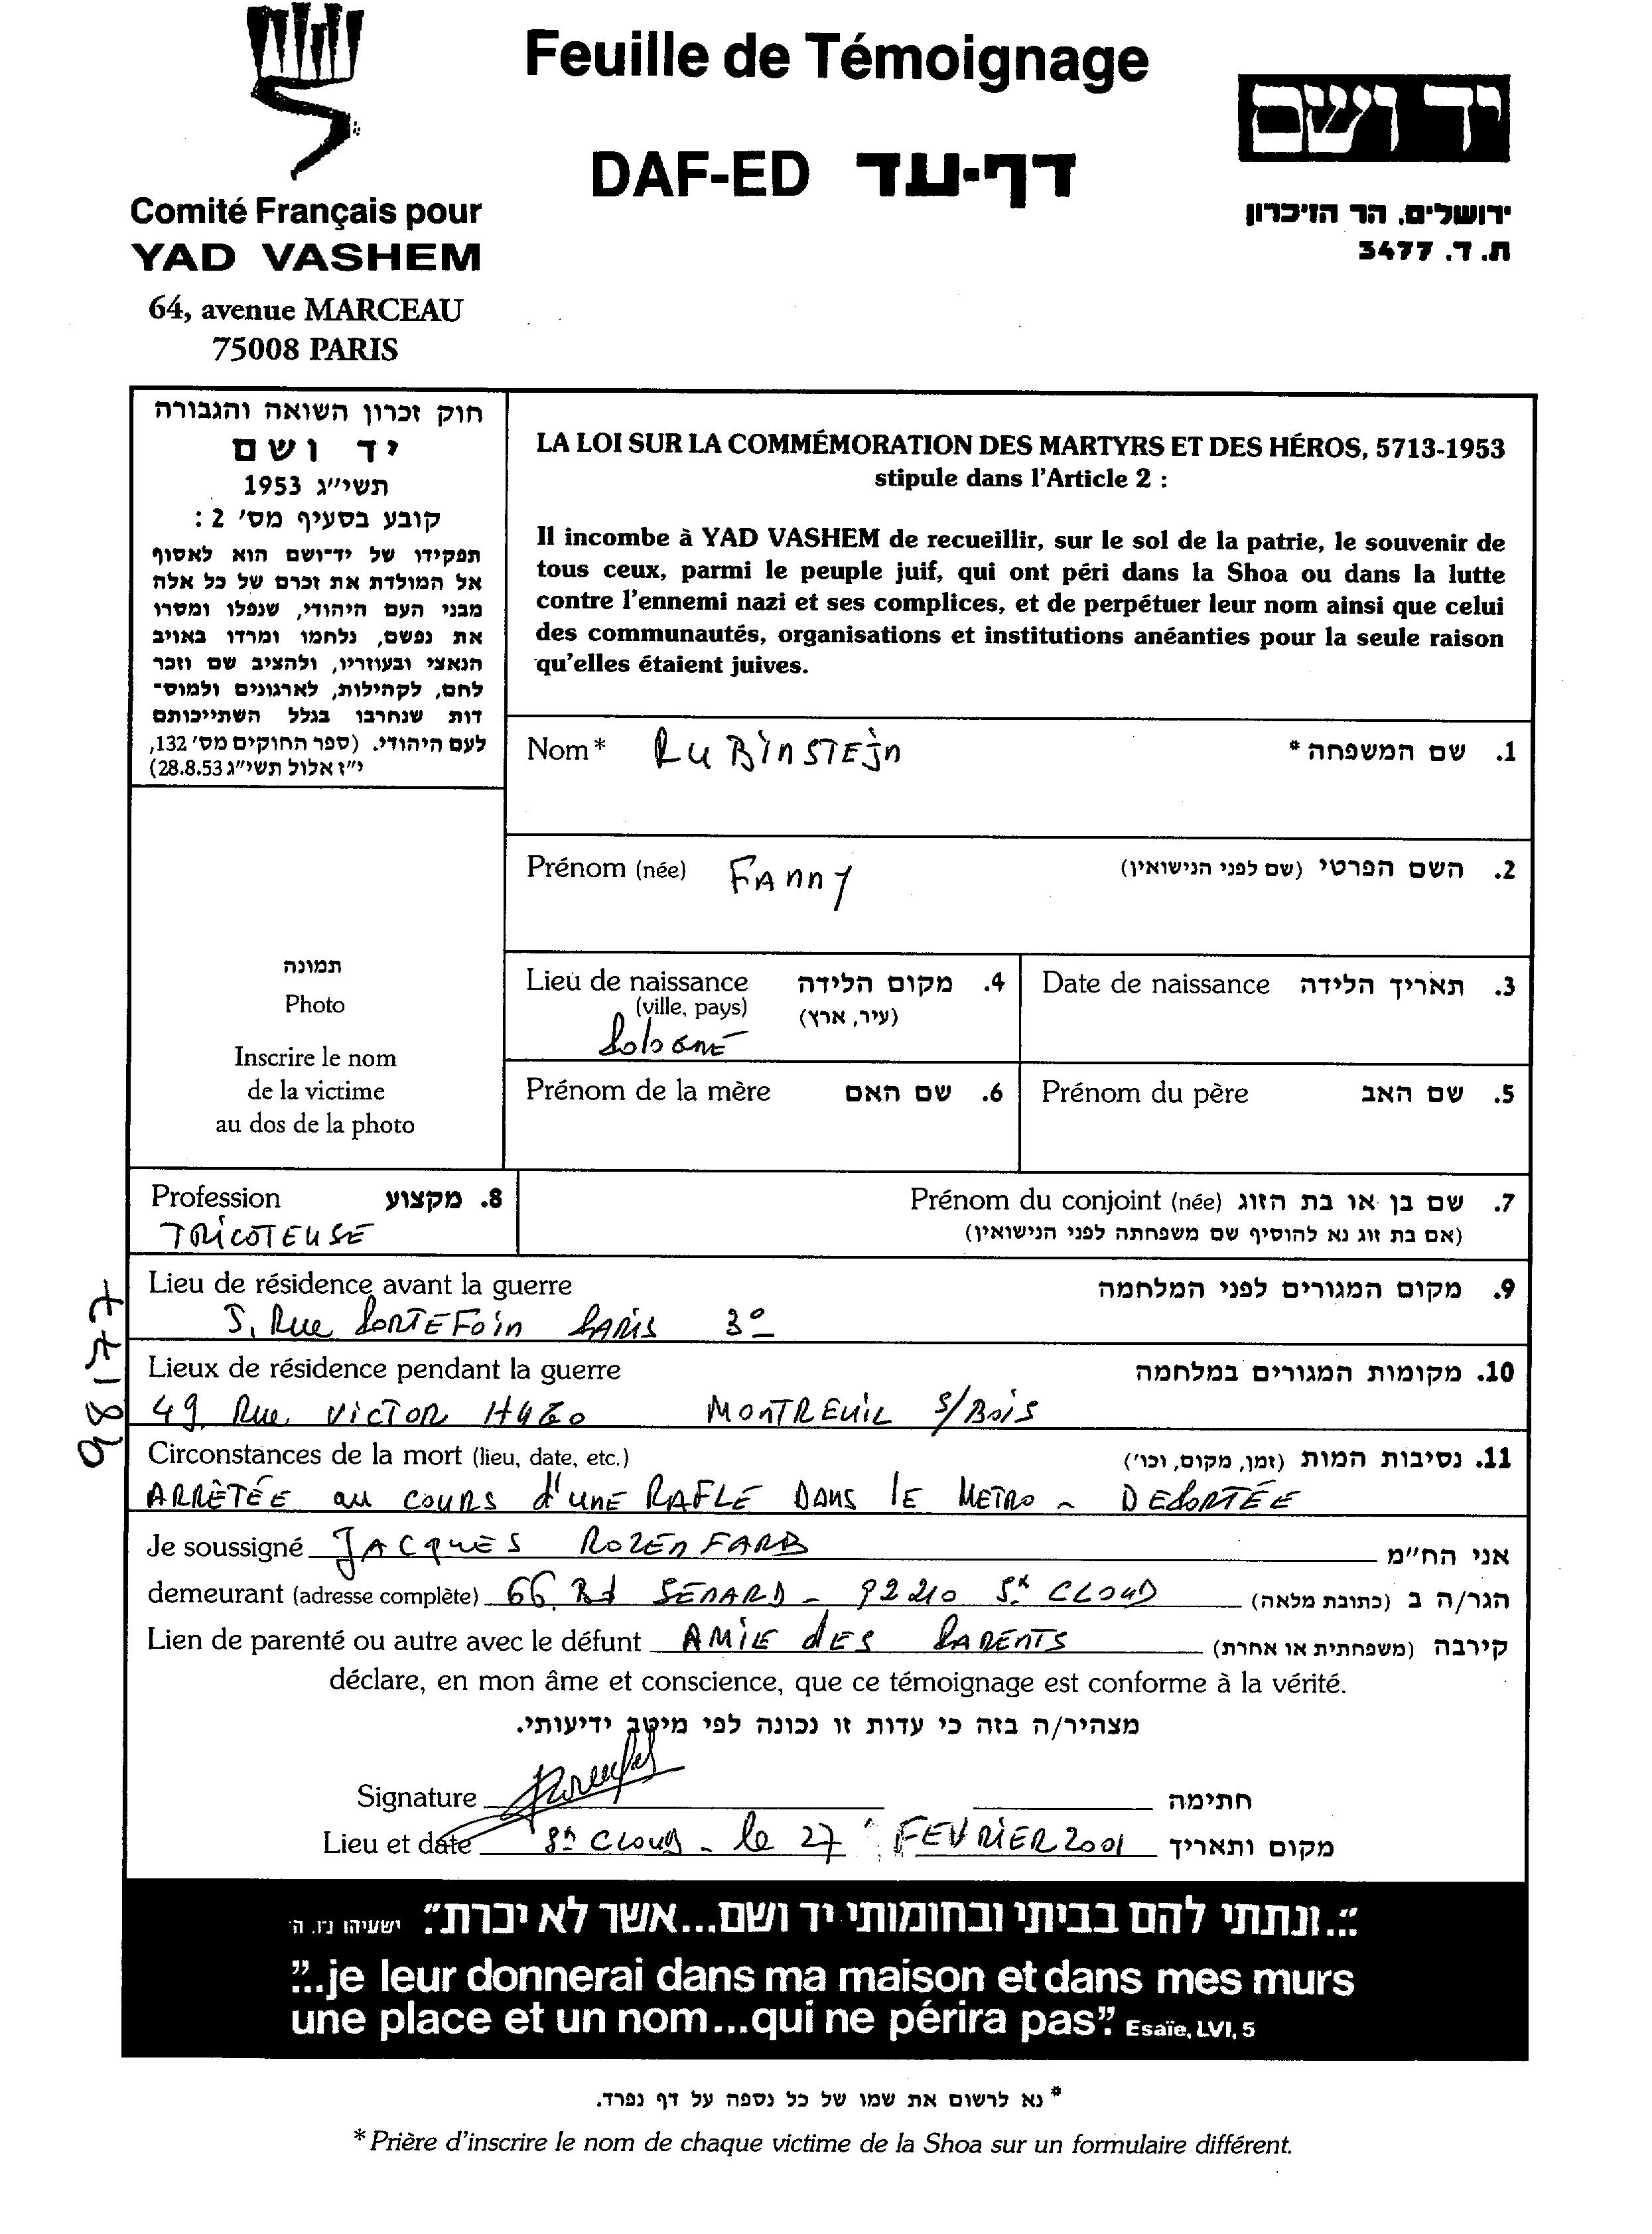 Feuille de Témoignage
DAF-ED דף-עד
Comité Français pour
YAD VASHEM
64, avenue MARCEAU
75008 PARIS
יד ושם
ירושלים. הר הזיכרון
ת. ד. 3477
חוק זכרון השואה והגבורה
יד ושם
תשי״ג 1953
קובע בסעיף מס׳ 2 :
תפקידו של יד־ושם הוא לאסוף
אל המולדת את זכרם של כל אלה
מבני העם היהודי, שנפלו ומסרו
את נפשם, נלחמו ומרדו באויב
הנאצי ובעוזריו, ולהציב שם וזכר
לחם, לקהילות, לארגונים ולמוס־
דות שנחרבו בגלל השתייכותם
לעם היהודי. (ספר החוקים מס׳ 132,
י״ז אלול תשי״ג 28.8.53)
LA LOI SUR LA COMMÉMORATION DES MARTYRS ET DES HÉROS, 5713-1953
stipule dans l'Article 2 :
Il incombe à YAD VASHEM de recueillir, sur le sol de la patrie, le souvenir de
tous ceux, parmi le peuple juif, qui ont péri dans la Shoa ou dans la lutte
contre l'ennemi nazi et ses complices, et de perpétuer leur nom ainsi que celui
des communautés, organisations et institutions anéanties pour la seule raison
qu'elles étaient juives.
Nom* RUBINSTEJN 1. שם המשפחה *
Prénom (née) FANNY 2. השם הפרטי (שם לפני הנישואין)
תמונה
Photo
Inscrire le nom
de la victime
au dos de la photo
Lieu de naissance 4. מקום הלידה
(ville, pays) (עיר, ארץ)
POLOGNE
Date de naissance 3. תאריך הלידה
Prénom de la mère 6. שם האם
Prénom du père 5. שם האב
Profession 8. מקצוע
TRICOTEUSE
Prénom du conjoint (née) 7. שם בן או בת הזוג
(אם בת זוג נא להוסיף שם משפחתה לפני הנישואין)
Lieu de résidence avant la guerre 9. מקום המגורים לפני המלחמה
5, Rue PORTEFOIN PARIS 3e
Lieux de résidence pendant la guerre 10. מקומות המגורים במלחמה
49, Rue VICTOR HUGO MONTREUIL S/BOIS
Circonstances de la mort (lieu, date, etc.) 11. נסיבות המות (זמן, מקום, וכו׳)
ARRÊTÉE au COURS d'UNE RAFLE DANS lE METRO - DEPORTÉE
98177
Je soussigné JACQUES ROZENFARB אני הח״מ
demeurant (adresse complète) 66 Bd SENARD - 92210 St CLOUD הגר/ה ב (כתובת מלאה)
Lien de parenté ou autre avec le défunt AMIE dES PARENTS קירבה (משפחתית או אחרת)
déclare, en mon âme et conscience, que ce témoignage est conforme à la vérité.
מצהיר/ה בזה כי עדות זו נכונה לפי מיטב ידיעותי.
Signature חתימה
Lieu et date St CLOUD - le 27 FEVRIER 2001 מקום ותאריך
"...ונתתי להם בביתי ובחומותי יד ושם...אשר לא יכרת" ישעיהו נ״ו. ה׳
"...je leur donnerai dans ma maison et dans mes murs
une place et un nom...qui ne périra pas" Esaïe, LVI, 5
* נא לרשום את שמו של כל נספה על דף נפרד.
* Prière d'inscrire le nom de chaque victime de la Shoa sur un formulaire différent.